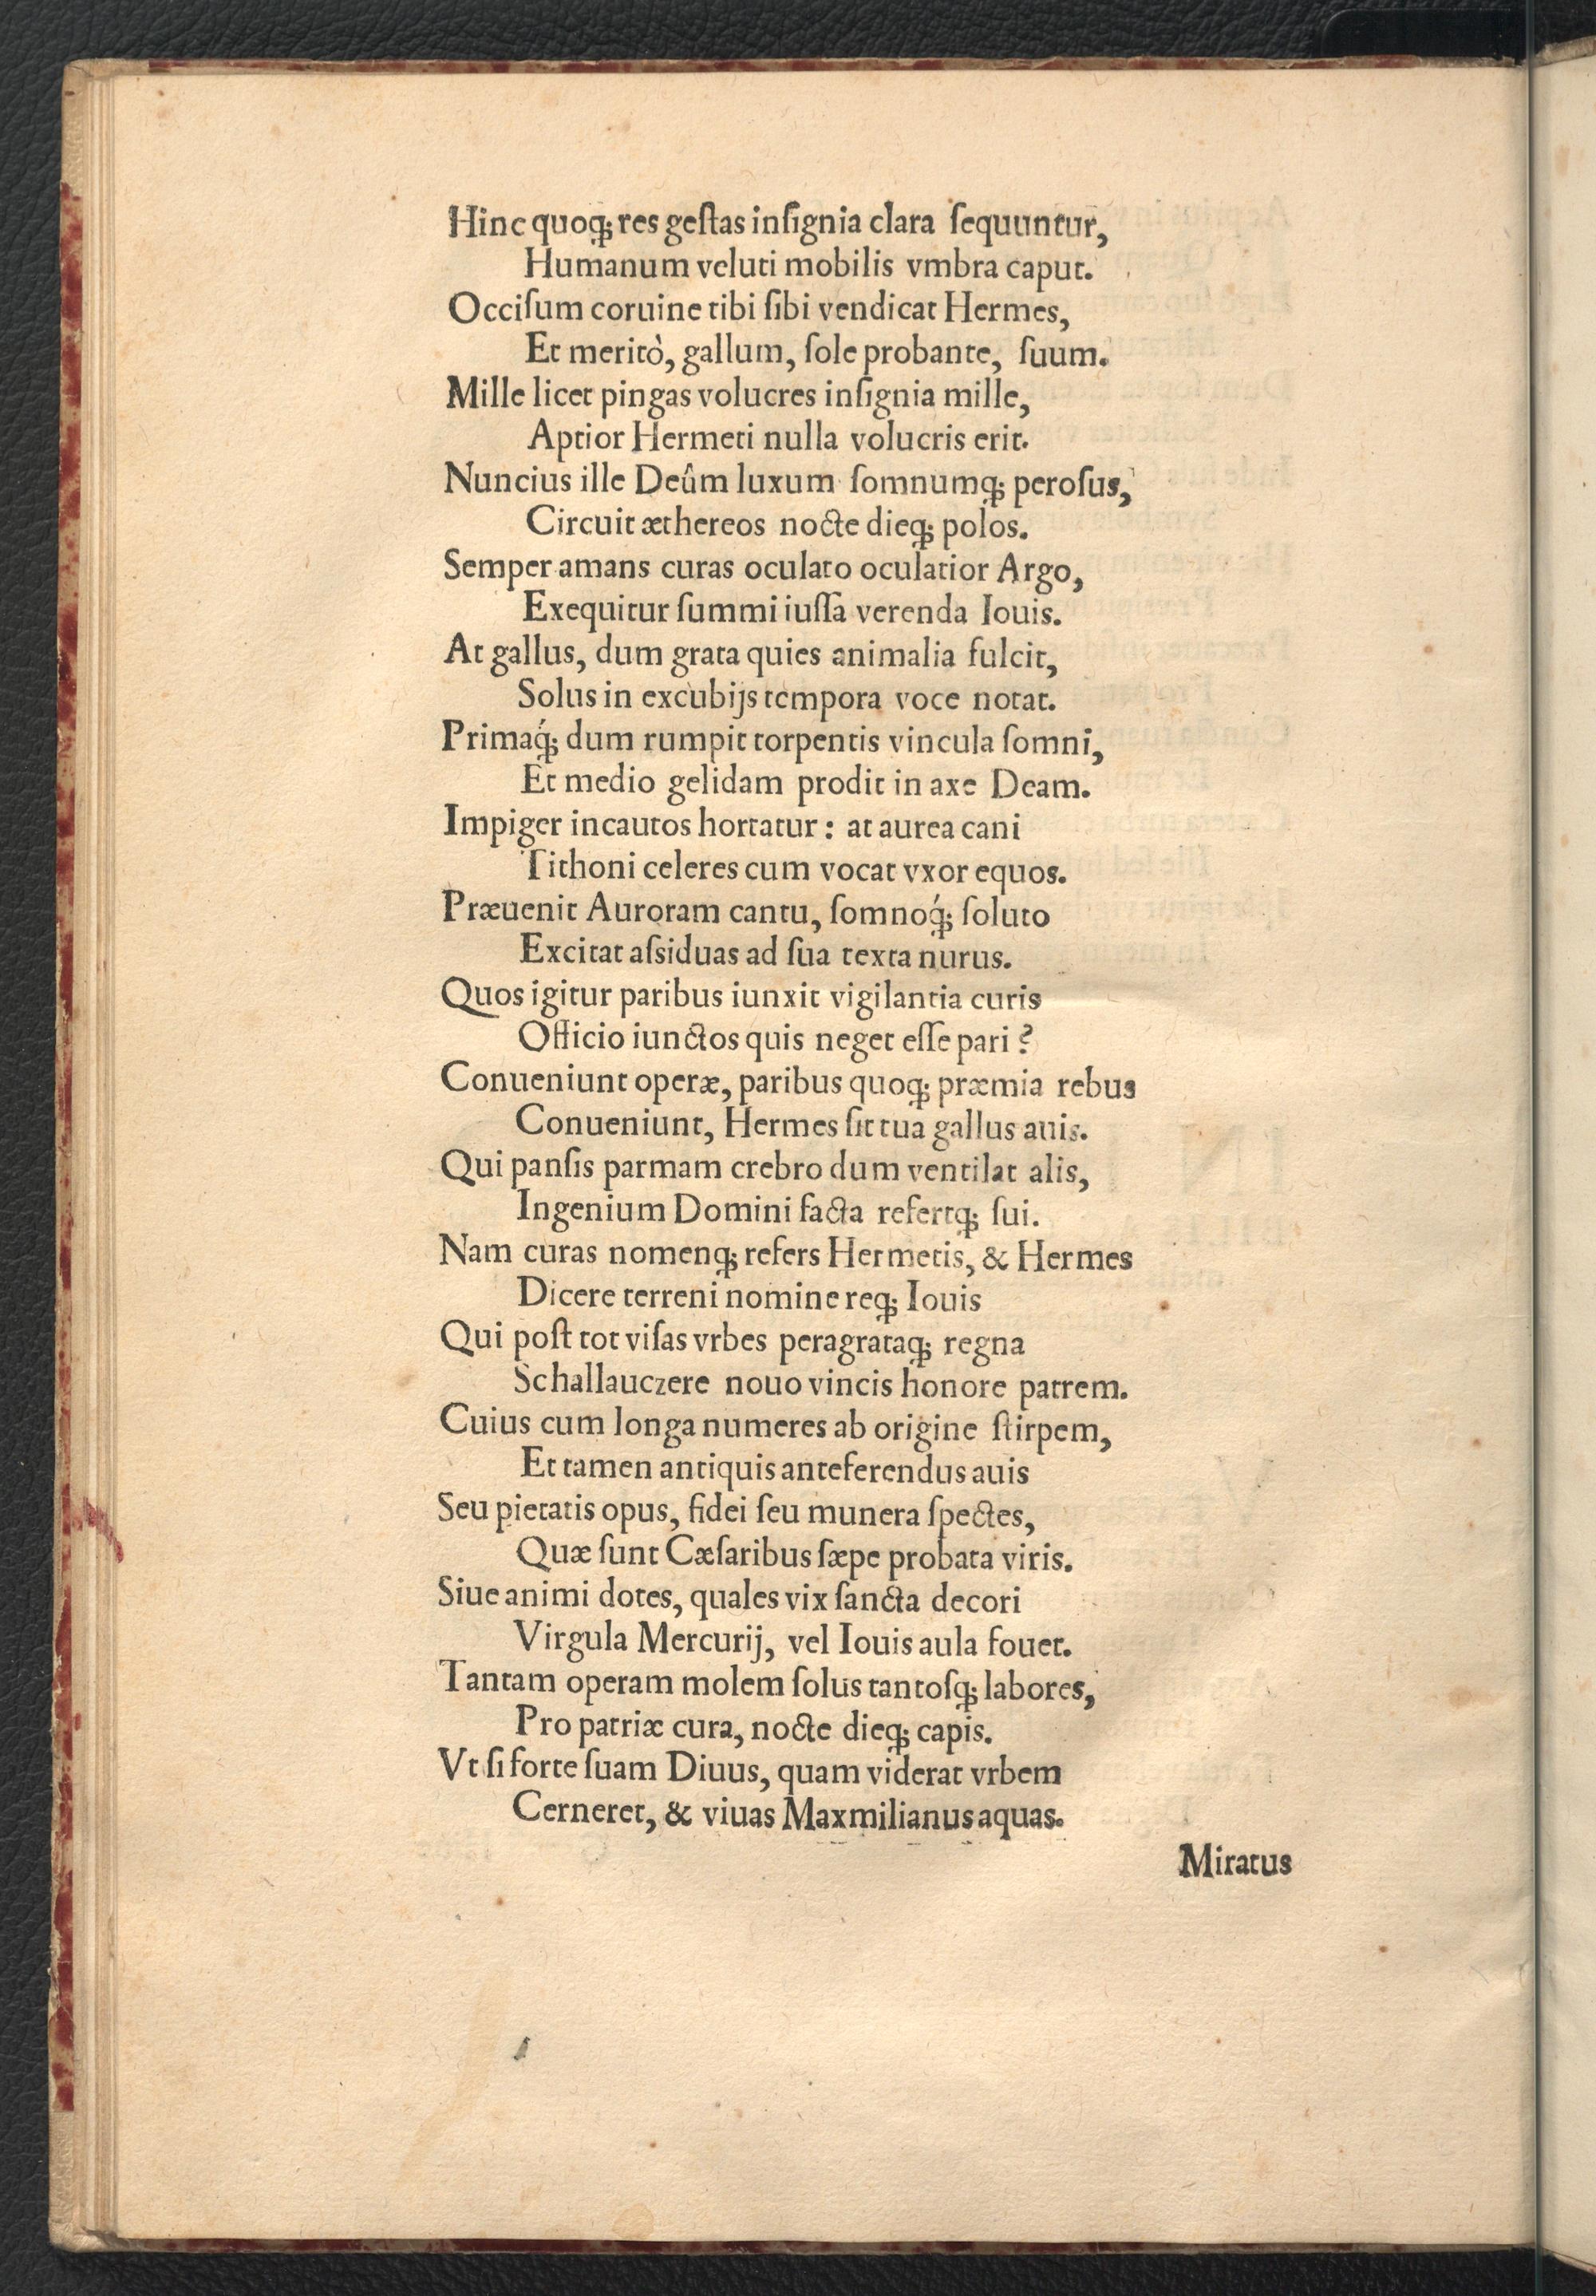 Hinc quoq; res geſtas inſignia clara ſequuntur,
Humanum veluti mobilis vmbra caput.
Occiſum coruine tibi ſibi vendicat Hermes,
Et meritò, gallum, ſole probante, ſuum.
Mille licet pingas volucres inſignia mille,
Aptior Hermeti nulla volucris erit.
Nuncius ille Deûm luxum ſomnumq; peroſus,
Circuit æthereos nocte dieq; polos.
Semper amans curas oculato oculatior Argo,
Exequitur ſummi iuſſa verenda Iouis.
At gallus, dum grata quies animalia fulcit,
Solus in excubijs tempora voce notat.
Primaq́; dum rumpit torpentis vincula ſomni,
Et medio gelidam prodit in axe Deam.
Impiger incautos hortatur: at aurea cani
Tithoni celeres cum vocat vxor equos.
Præuenit Auroram cantu, ſomnoq́; ſoluto
Excitat aſsiduas ad ſua texta nurus.
Quos igitur paribus iunxit vigilantia curis
Officio iunctos quis neget eſſe pari?
Conueniunt operæ, paribus quoq; præmia rebus
Conueniunt, Hermes ſit tua gallus auis.
Qui panſis parmam crebro dum ventilat alis,
Ingenium Domini facta refertq; ſui.
Nam curas nomenq; refers Hermetis, & Hermes
Dicere terreni nomine req; Iouis
Qui poſt tot viſas vrbes peragrataq; regna
Schallauczere nouo vincis honore patrem.
Cuius cum longa numeres ab origine ſtirpem,
Et tamen antiquis anteferendus auis
Seu pietatis opus, fidei ſeu munera ſpectes,
Quæ ſunt Cæſaribus ſæpe probata viris.
Siue animi dotes, quales vix ſancta decori
Virgula Mercurij, vel Iouis aula fouet.
Tantam operam molem ſolus tantoſq; labores,
Pro patriæ cura, nocte dieq; capis.
Vt ſi forte ſuam Diuus, quam viderat vrbem
Cerneret, & viuas Maxmilianus aquas.
Miratus